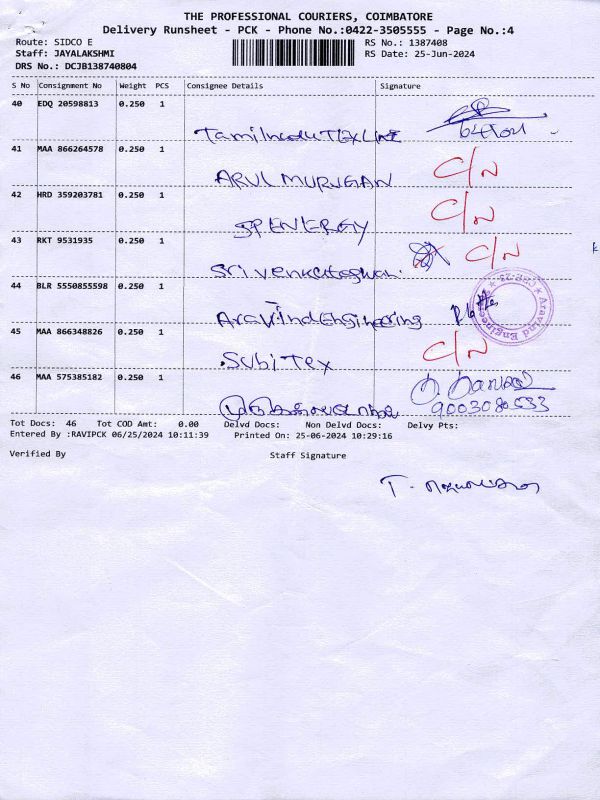 THE PROFESSIONAL COURIERS, COIMBATORE
Delivery Runsheet - PCK - Phone No.:0422-3505555 - Page No.:4
Route: SIDCO E
RS No.: 1387408
Staff: JAYALAKSHMI
RS Date: 25-Jun-2024
DRS No.: DCJB138740804
S No Consignment No Weight PCS Consignee Details Signature
40 EDQ 20598813 0.250 1
Tamilnadu
41 MAA 866264578 0.250 1 C/N
ARUL MURUGAN
42 HRD 359203781 0.250 1 C/N
SP ENERGY
43 RKT 9531935 0.250 1 C/N
Sri
44 BLR 5550855598 0.250 1
Aravind Engineering
Aravind Engineering
45 MAA 866348826 0.250 1 C/N
Subi Tex
46 MAA 575385182 0.250 1
Tot Docs: 46 Tot COD Amt: 0.00 Delvd Docs: Non Delvd Docs: Delvy Pts:
Entered By :RAVIPCK 06/25/2024 10:11:39 Printed On: 25-06-2024 10:29:16
Verified By Staff Signature